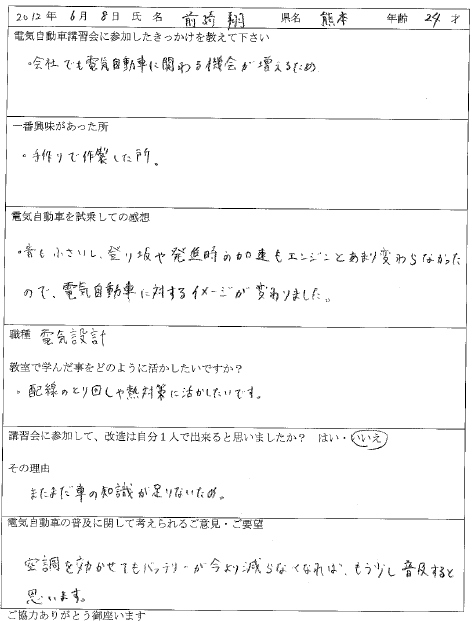 2012年 6月 8日 氏名 前崎 翔 県名 熊本 年齢 24 才
電気自動車講習会に参加したきっかけを教えて下さい
・会社でも電気自動車に関わる機会が増えるため
一番興味があった所
・手作りで作製した所。
電気自動車を試乗しての感想
・音も小さいし、登り坂や発進時の加速もエンジンとあまり変わらなかった
ので、電気自動車に対するイメージが変わりました。
職種 電気設計
教室で学んだ事をどのように活かしたいですか?
・配線のとり回しや熱対策に活かしたいです。
講習会に参加して、改造は自分1人で出来ると思いましたか? はい・いいえ
その理由
まだまだ車の知識が足りないため。
電気自動車の普及に関して考えられるご意見・ご要望
空調を効かせてもバッテリーが今より減らなくなれば、もう少し普及すると
思います。
ご協力ありがとう御座います